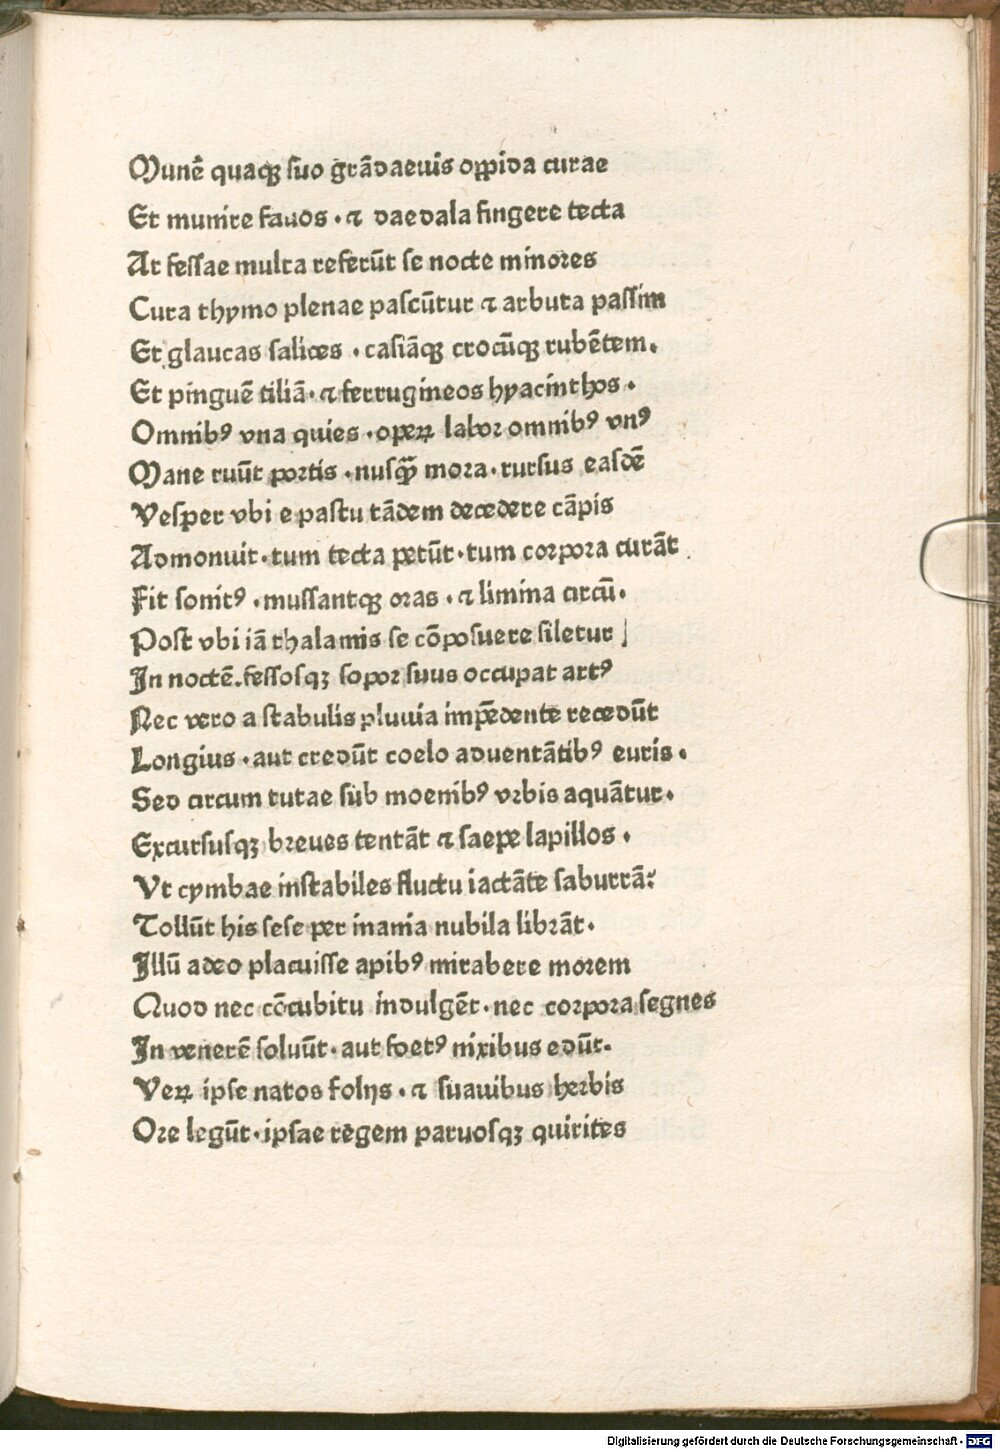 Munē quaqꝫ ſuo grādaeuis oꝑpida curae
Et munire fauos · ⁊ daedala fingere tecta
At feſſae multa referūt ſe nocte minores
Cura thymo plenae paſcūtur ⁊ arbuta paſſim
Et glaucas ſalices · caſiāqꝫ crocūqꝫ rubētem.
Et pinguē tiliā · ⁊ ferrugineos hyacinthos ·
Omnibꝰ vna quies · oꝑeꝝ labor omnibꝰ vnꝰ
Mane ruūt portis · nuſqꝫ̄ mora · rurſus eaſdē
Veſper vbi e paſtu tādem decedere cāpis
Admonuit · tum tecta petūt · tum corpora curāt
Fit ſonitꝰ · muſſantqꝫ oras · ⁊ limina circū ·
Poſt vbi iā thalamis ſe cōpoſuere ſiletur
In noctē. feſſoſqꝫ ſopor ſuus occupat artꝰ
Nec vero a ſtabulis pluuia impēdente recedūt
Longius · aut credūt coelo aduentātibꝰ euris ·
Sed circum tutae ſub moenibꝰ vrbis aquātur ·
Excurſuſqꝫ breues tentāt ⁊ ſaepe lapillos ·
Vt cymbae inſtabiles fluctu iactāte ſaburrā:
Tollūt his ſeſe per inania nubila librāt ·
Illū adeo placuiſſe apibꝰ mirabere morem
Quod nec cōcubitu indulgēt · nec corpora ſegnes
In venerē ſoluūt · aut foetꝰ nixibus edūt ·
Veꝝ ipſe natos folijs · ⁊ ſuauibus herbis
Ore legūt · ipſae regem paruoſqꝫ quirites
Digitalisierung gefördert durch die Deutsche Forschungsgemeinschaft - DFG